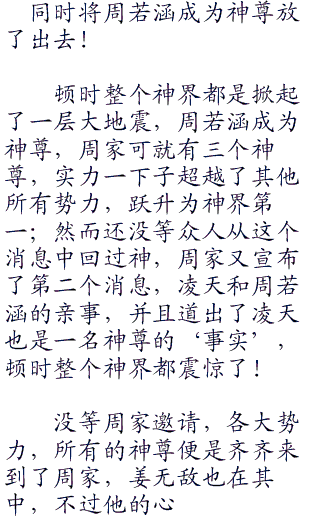 同时将周若涵成为神尊放
了出去！
顿时整个神界都是掀起
了一层大地震，周若涵成为
神尊，周家可就有三个神
尊，实力一下子超越了其他
所有势力，跃升为神界第
一；然而还没等众人从这个
消息中回过神，周家又宣布
了第二个消息，凌天和周若
涵的亲事，并且道出了凌天
也是一名神尊的‘事实’，
顿时整个神界都震惊了！
没等周家邀请，各大势
力，所有的神尊便是齐齐来
到了周家，姜无敌也在其
中，不过他的心